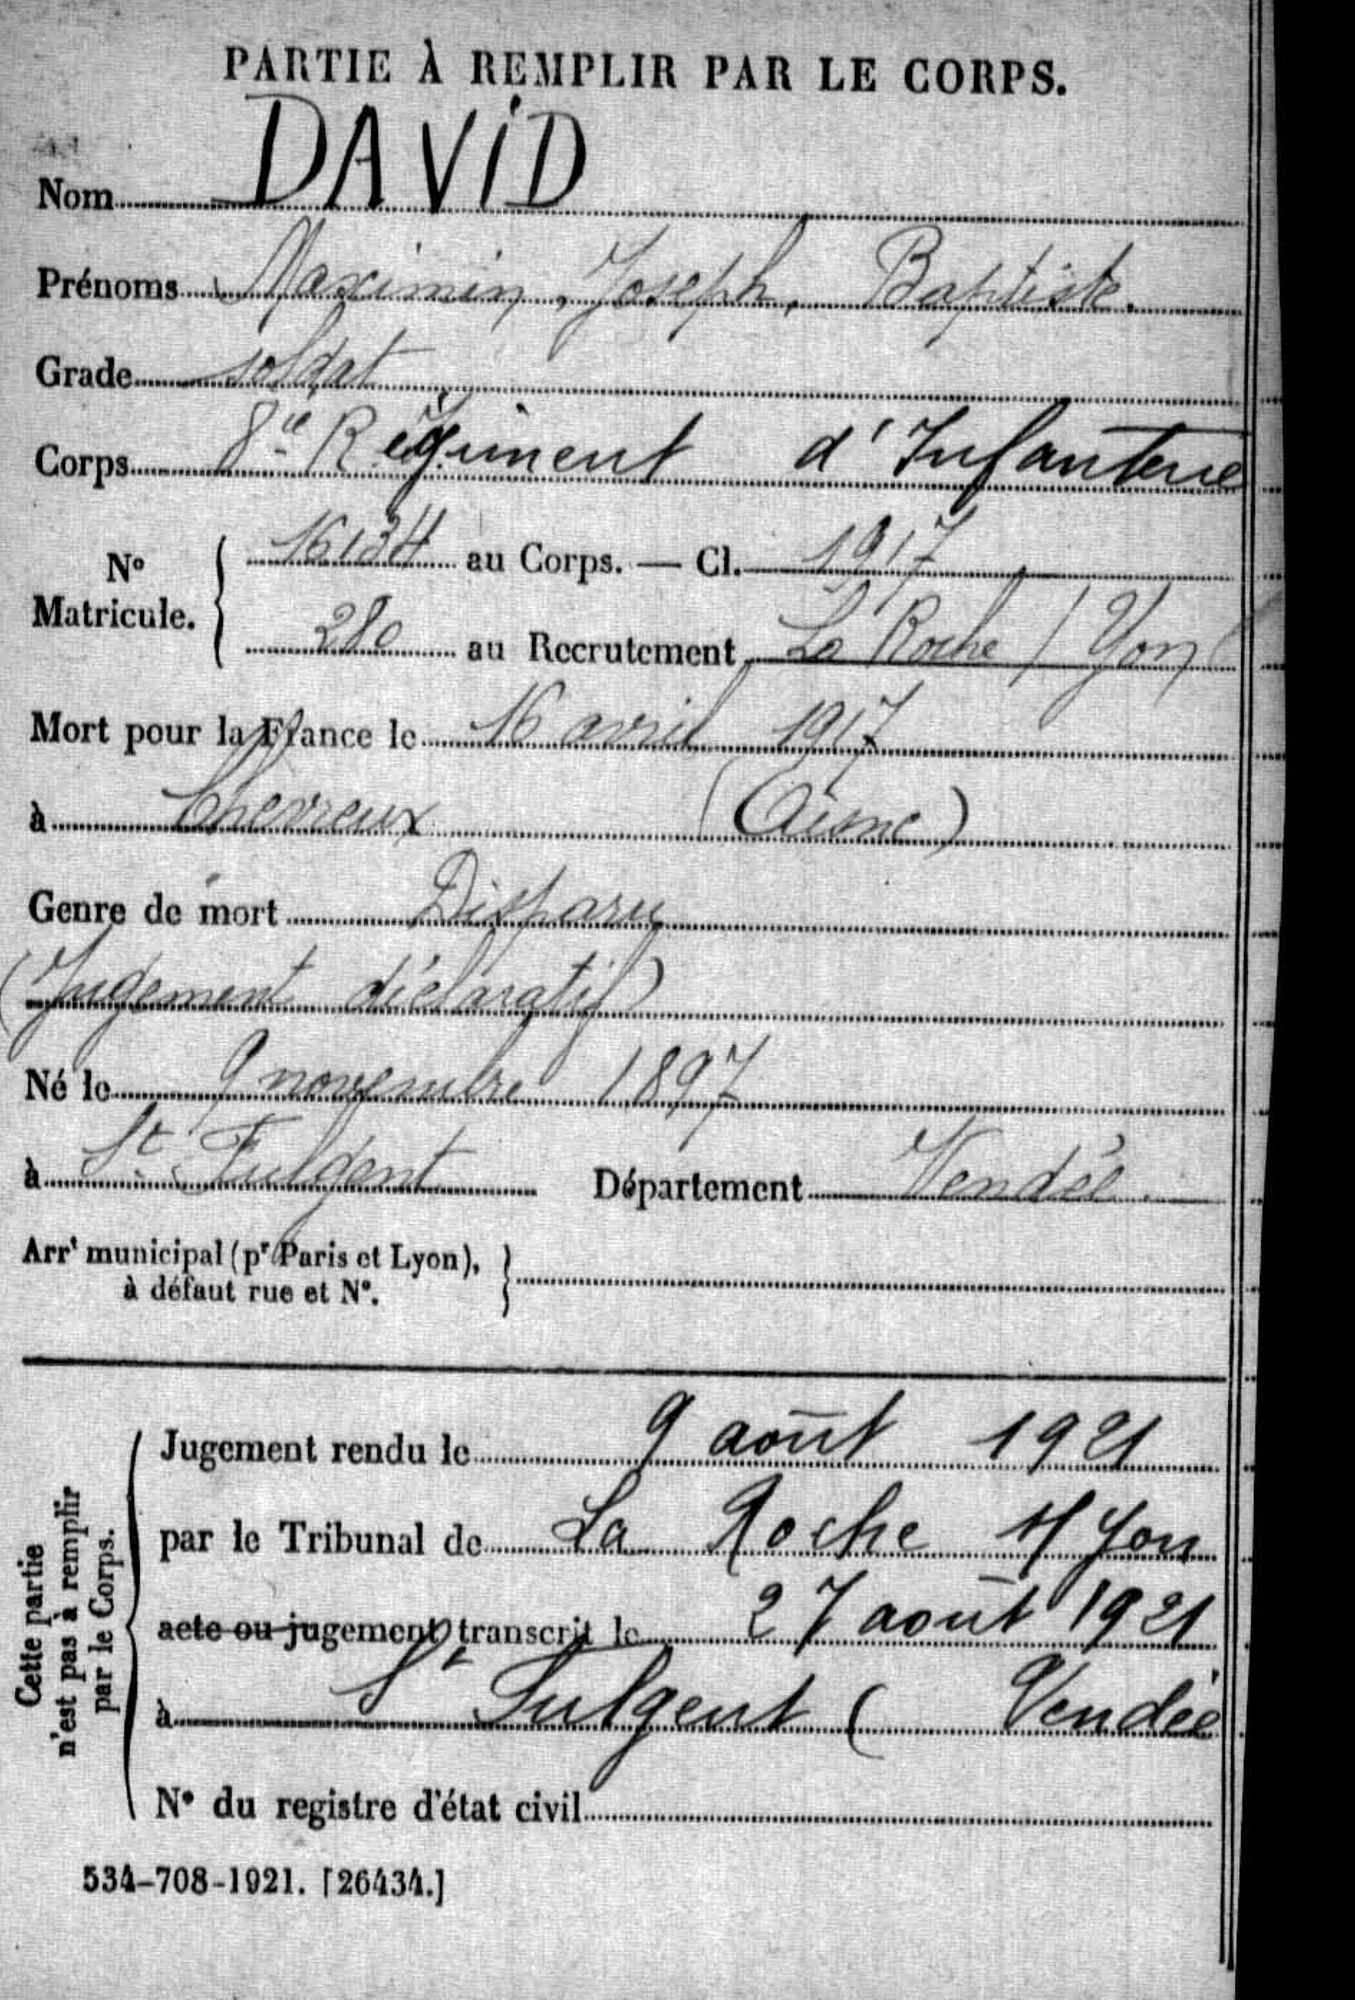 PARTIE À REMPLIR PAR LE CORPS.
Nom DAVID
Prénoms Maximin, Joseph, Baptiste.
Grade soldat
Corps 8e Régiment d'Infanterie
No Matricule. { 16134 au Corps. — Cl. 1917
280 au Recrutement La Roche / Yon
Mort pour la France le 16 avril 1917
à Chevreux (Aisne)
Genre de mort Disparu
(Jugement déclaratif)
Né le 9 novembre 1897
à St Fulgent Département Vendée.
Arrt municipal (pr Paris et Lyon), }
à défaut rue et No.
Cette partie
n'est pas à remplir
par le Corps.
Jugement rendu le 9 août 1921
par le Tribunal de La Roche s/ Yon
acte ou jugement transcrit le 27 août 1921
à St Fulgent ( Vendée
No du registre d'état civil
534-708-1921. [26434.]